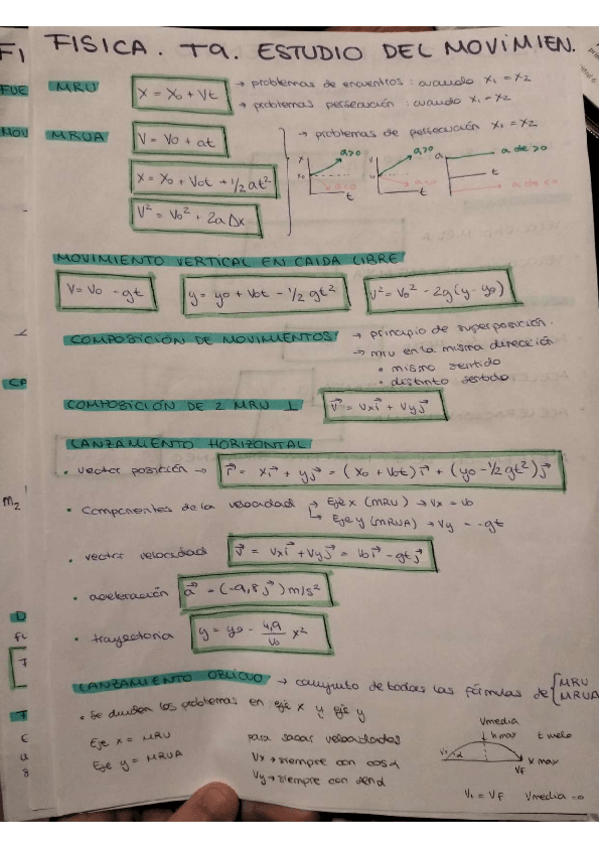 FI
FISICA. T9. ESTUDIO DEL MOVIMIEN.
FUE
MRU
X = X₀ + Vt
→ problemas de encuentros : cuando x₁ = x₂
→ problemas persecución : cuando x₁ = x₂
MOV
MRUA
V = V₀ + at
→ problemas de persecución x₁ = x₂
X = X₀ + V₀t + 1/2 at²
V² = V₀² + 2a Δx
x a>0 v a>0 a a de >0
x₀ a<0 a<0 t a de <0
t t
MOVIMIENTO VERTICAL EN CAIDA LIBRE
V = V₀ - gt
y = y₀ + V₀t - 1/2 gt²
V² = V₀² - 2g (y - y₀)
COMPOSICIÓN DE MOVIMIENTOS → principio de superposición.
→ mru en la misma dirección
• mismo sentido
• distinto sentido
CA
COMPOSICIÓN DE 2 MRU ⊥
v⃗ = Vx i⃗ + Vy j⃗
LANZAMIENTO HORIZONTAL
• vector posición → r⃗ = x i⃗ + y j⃗ = (x₀ + V₀t) i⃗ + (y₀ - 1/2 gt²) j⃗
m₂
• componentes de la velocidad → Eje x (MRU) → Vx = V₀
→ Eje y (MRUA) → Vy = -gt
• vector velocidad v⃗ = Vx i⃗ + Vy j⃗ = V₀ i⃗ - gt j⃗
• aceleración a⃗ = (-9,8 j⃗) m/s²
• trayectoria y = y₀ - 4,9/V₀ x²
LANZAMIENTO OBLICUO → conjunto de todas las fórmulas de { MRU
MRUA
• Se dividen los problemas en eje x y eje y
Eje x = MRU
Eje y = MRUA
para sacar velocidades
Vx → siempre con cos α
Vy → siempre con sen α
Vmedia
h max t vuelo
V₁ α x max
VF
V₁ = VF Vmedia = 0